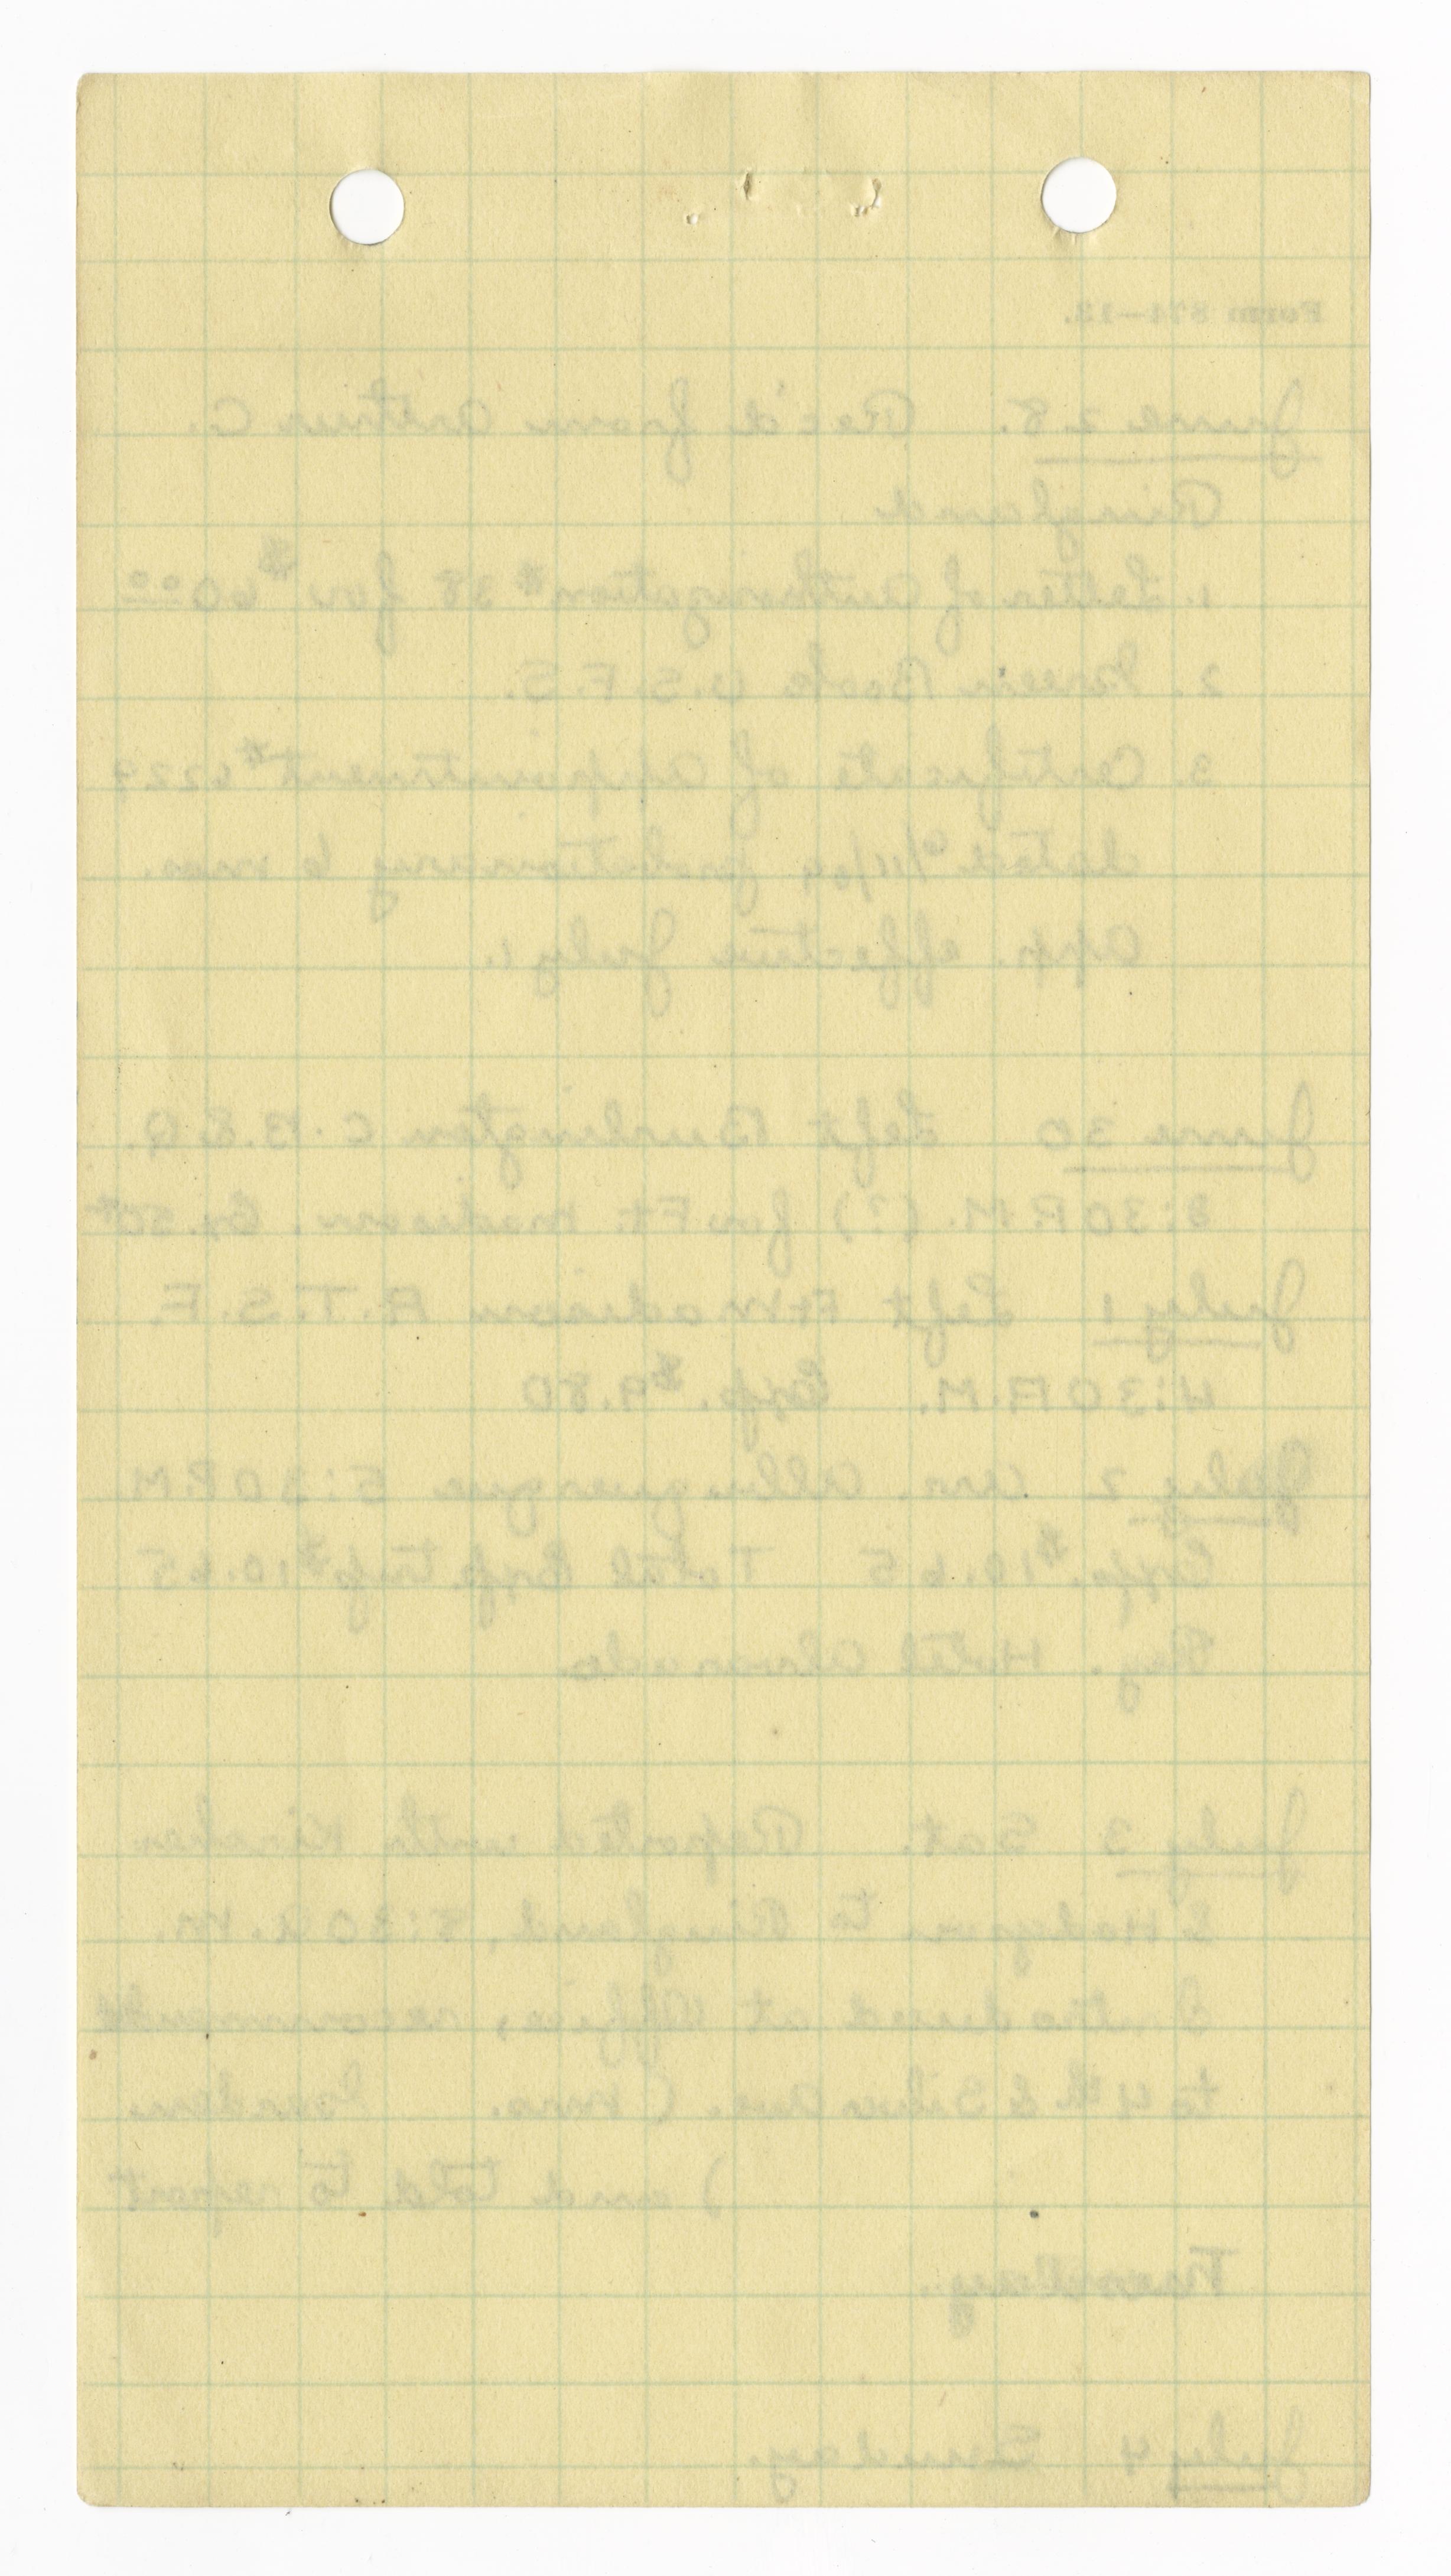 Form 874—12.
June 28. Rec'd from Arthur C.
Ringland
1. Letter of Authorization #38 for $60.00
2. Green Book U.S.F.S.
3. Certificate of Appointment #6229
dated 6/11/09 probationary 6 mos.
App. effective July 1.
June 30 Left Burlington C.B.&Q.
8:30 P.M. (?) for Ft. Madison. Ex. 50¢
July 1 Left Ft Madison A.T.S.F.
4:30 A.M. Exp. $9.80
July 2 Arr. Albuquerque 5:30 P.M
Exp. $10.65 Total Exp. trip $10.65
Reg. Hotel Alvarado
July 3 Sat. Reported with Kircher
& Hodgson to Ringland, 8:30 A.M.
Introduced at Office, recommended
to 4th & Silver Ave. (Mrs.
) and told to report
Tuesday.
July 4 Sunday.